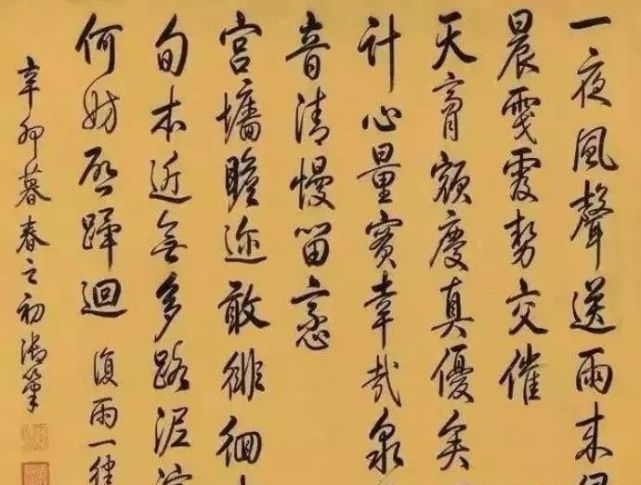 一夜風聲送雨来
晨勢交催
天膏額慶真優矣
計心量實幸哉泉
音清慢留意
宮墻瞻迩敢徘徊
旬本近無多路泥
何妨啟蹕迴 復雨一律
辛卯暮春之初御筆